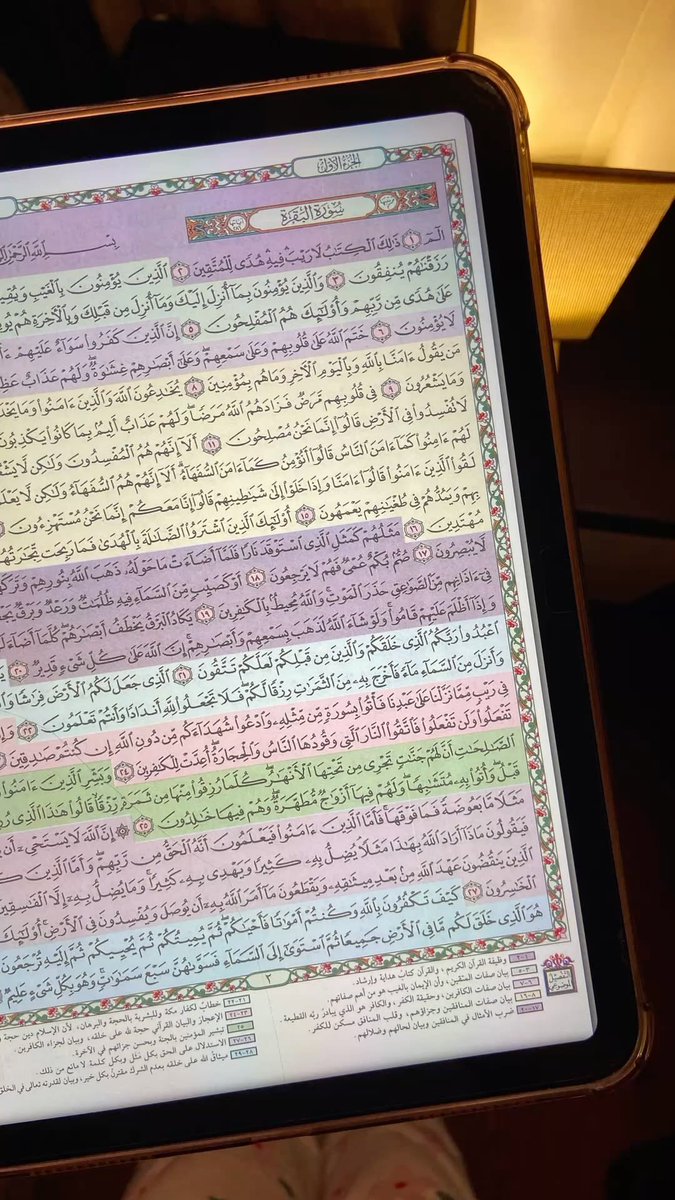 الجزء الأول
سُورَةُ البَقَرَةِ
بِسْمِ اللَّهِ الرَّحْمَٰنِ
الٓمٓ ١ ذَٰلِكَ ٱلْكِتَٰبُ لَا رَيْبَ فِيهِ هُدًى لِّلْمُتَّقِينَ ٢ ٱلَّذِينَ يُؤْمِنُونَ بِٱلْغَيْبِ
رَزَقْنَٰهُمْ يُنفِقُونَ ٣ وَٱلَّذِينَ يُؤْمِنُونَ بِمَآ أُنزِلَ إِلَيْكَ وَمَآ أُنزِلَ مِن قَبْلِكَ وَبِٱلْأٓخِرَةِ هُمْ
عَلَىٰ هُدًى مِّن رَّبِّهِمْ وَأُو۟لَٰٓئِكَ هُمُ ٱلْمُفْلِحُونَ ٥ إِنَّ ٱلَّذِينَ كَفَرُوا۟ سَوَآءٌ عَلَيْهِمْ
لَا يُؤْمِنُونَ ٦ خَتَمَ ٱللَّهُ عَلَىٰ قُلُوبِهِمْ وَعَلَىٰ سَمْعِهِمْ وَعَلَىٰٓ أَبْصَٰرِهِمْ غِشَٰوَةٌ وَلَهُمْ عَذَابٌ
مَن يَقُولُ ءَامَنَّا بِٱللَّهِ وَبِٱلْيَوْمِ ٱلْأٓخِرِ وَمَا هُم بِمُؤْمِنِينَ ٨ يُخَٰدِعُونَ ٱللَّهَ وَٱلَّذِينَ ءَامَنُوا۟ وَمَا
وَمَا يَشْعُرُونَ ٩ فِى قُلُوبِهِم مَّرَضٌ فَزَادَهُمُ ٱللَّهُ مَرَضًا وَلَهُمْ عَذَابٌ أَلِيمٌۢ بِمَا كَانُوا۟ يَكْذِبُونَ
لَا تُفْسِدُوا۟ فِى ٱلْأَرْضِ قَالُوٓا۟ إِنَّمَا نَحْنُ مُصْلِحُونَ ١١ أَلَآ إِنَّهُمْ هُمُ ٱلْمُفْسِدُونَ وَلَٰكِن لَّا
لَهُمْ ءَامِنُوا۟ كَمَآ ءَامَنَ ٱلنَّاسُ قَالُوٓا۟ أَنُؤْمِنُ كَمَآ ءَامَنَ ٱلسُّفَهَآءُ أَلَآ إِنَّهُمْ هُمُ ٱلسُّفَهَآءُ وَلَٰكِن لَّا
لَقُوا۟ ٱلَّذِينَ ءَامَنُوا۟ قَالُوٓا۟ ءَامَنَّا وَإِذَا خَلَوْا۟ إِلَىٰ شَيَٰطِينِهِمْ قَالُوٓا۟ إِنَّا مَعَكُمْ إِنَّمَا نَحْنُ مُسْتَهْزِءُونَ
بِهِمْ وَيَمُدُّهُمْ فِى طُغْيَٰنِهِمْ يَعْمَهُونَ ١٥ أُو۟لَٰٓئِكَ ٱلَّذِينَ ٱشْتَرَوُا۟ ٱلضَّلَٰلَةَ بِٱلْهُدَىٰ فَمَا رَبِحَت تِّجَٰرَتُهُمْ
مُهْتَدِينَ ١٦ مَثَلُهُمْ كَمَثَلِ ٱلَّذِى ٱسْتَوْقَدَ نَارًا فَلَمَّآ أَضَآءَتْ مَا حَوْلَهُۥ ذَهَبَ ٱللَّهُ بِنُورِهِمْ
لَّا يُبْصِرُونَ ١٧ صُمٌّۢ بُكْمٌ عُمْىٌ فَهُمْ لَا يَرْجِعُونَ ١٨ أَوْ كَصَيِّبٍ مِّنَ ٱلسَّمَآءِ فِيهِ ظُلُمَٰتٌ وَرَعْدٌ وَبَرْقٌ
فِىٓ ءَاذَانِهِم مِّنَ ٱلصَّوَٰعِقِ حَذَرَ ٱلْمَوْتِ وَٱللَّهُ مُحِيطٌۢ بِٱلْكَٰفِرِينَ ١٩ يَكَادُ ٱلْبَرْقُ يَخْطَفُ أَبْصَٰرَهُمْ كُلَّمَآ أَضَآءَ
وَإِذَآ أَظْلَمَ عَلَيْهِمْ قَامُوا۟ وَلَوْ شَآءَ ٱللَّهُ لَذَهَبَ بِسَمْعِهِمْ وَأَبْصَٰرِهِمْ إِنَّ ٱللَّهَ عَلَىٰ كُلِّ شَىْءٍ قَدِيرٌ ٢٠
ٱعْبُدُوا۟ رَبَّكُمُ ٱلَّذِى خَلَقَكُمْ وَٱلَّذِينَ مِن قَبْلِكُمْ لَعَلَّكُمْ تَتَّقُونَ ٢١ ٱلَّذِى جَعَلَ لَكُمُ ٱلْأَرْضَ فِرَٰشًا
وَأَنزَلَ مِنَ ٱلسَّمَآءِ مَآءً فَأَخْرَجَ بِهِۦ مِنَ ٱلثَّمَرَٰتِ رِزْقًا لَّكُمْ فَلَا تَجْعَلُوا۟ لِلَّهِ أَندَادًا وَأَنتُمْ تَعْلَمُونَ ٢٢
فِى رَيْبٍ مِّمَّا نَزَّلْنَا عَلَىٰ عَبْدِنَا فَأْتُوا۟ بِسُورَةٍ مِّن مِّثْلِهِۦ وَٱدْعُوا۟ شُهَدَآءَكُم مِّن دُونِ ٱللَّهِ إِن كُنتُمْ صَٰدِقِينَ
تَفْعَلُوا۟ وَلَن تَفْعَلُوا۟ فَٱتَّقُوا۟ ٱلنَّارَ ٱلَّتِى وَقُودُهَا ٱلنَّاسُ وَٱلْحِجَارَةُ أُعِدَّتْ لِلْكَٰفِرِينَ ٢٤ وَبَشِّرِ ٱلَّذِينَ ءَامَنُوا۟
ٱلصَّٰلِحَٰتِ أَنَّ لَهُمْ جَنَّٰتٍ تَجْرِى مِن تَحْتِهَا ٱلْأَنْهَٰرُ كُلَّمَا رُزِقُوا۟ مِنْهَا مِن ثَمَرَةٍ رِّزْقًا قَالُوا۟ هَٰذَا ٱلَّذِى
قَبْلُ وَأُتُوا۟ بِهِۦ مُتَشَٰبِهًا وَلَهُمْ فِيهَآ أَزْوَٰجٌ مُّطَهَّرَةٌ وَهُمْ فِيهَا خَٰلِدُونَ ٢٥ ۞ إِنَّ ٱللَّهَ لَا يَسْتَحْىِۦٓ أَن
مَثَلًا مَّا بَعُوضَةً فَمَا فَوْقَهَا فَأَمَّا ٱلَّذِينَ ءَامَنُوا۟ فَيَعْلَمُونَ أَنَّهُ ٱلْحَقُّ مِن رَّبِّهِمْ وَأَمَّا ٱلَّذِينَ
فَيَقُولُونَ مَاذَآ أَرَادَ ٱللَّهُ بِهَٰذَا مَثَلًا يُضِلُّ بِهِۦ كَثِيرًا وَيَهْدِى بِهِۦ كَثِيرًا وَمَا يُضِلُّ بِهِۦٓ إِلَّا ٱلْفَٰسِقِينَ
ٱلَّذِينَ يَنقُضُونَ عَهْدَ ٱللَّهِ مِنۢ بَعْدِ مِيثَٰقِهِۦ وَيَقْطَعُونَ مَآ أَمَرَ ٱللَّهُ بِهِۦٓ أَن يُوصَلَ وَيُفْسِدُونَ فِى ٱلْأَرْضِ أُو۟لَٰٓئِكَ
ٱلْخَٰسِرُونَ ٢٧ كَيْفَ تَكْفُرُونَ بِٱللَّهِ وَكُنتُمْ أَمْوَٰتًا فَأَحْيَٰكُمْ ثُمَّ يُمِيتُكُمْ ثُمَّ يُحْيِيكُمْ ثُمَّ إِلَيْهِ تُرْجَعُونَ
هُوَ ٱلَّذِى خَلَقَ لَكُم مَّا فِى ٱلْأَرْضِ جَمِيعًا ثُمَّ ٱسْتَوَىٰٓ إِلَى ٱلسَّمَآءِ فَسَوَّىٰهُنَّ سَبْعَ سَمَٰوَٰتٍ وَهُوَ بِكُلِّ شَىْءٍ عَلِيمٌ
٣
وظيفة القرآن الكريم، والقرآن كتاب هداية وإرشاد.
٣-٥ بيان صفات المتقين، وأن الإيمان بالغيب هو من أهم صفاتهم.
٦-٧ بيان صفات الكافرين، وحقيقة الكفر، والكافر هو الذي يبادر ربه القطيعة.
٨-١٦ بيان صفات المنافقين وجزاؤهم، وقلب المنافق مسكن للكفر.
١٧-٢٠ ضرب الأمثال في المنافقين وبيان لحالهم وضلالهم.
٢١-٢٢ خطاب لكفار مكة وللبشرية بالحجة والبرهان، لأن الإسلام دين حجة
٢٣-٢٤ الإعجاز والبيان القرآني حجة لله على خلقه، وبيان لجزاء الكافرين.
٢٥ تبشير المؤمنين بالجنة وبحسن جزائهم في الآخرة.
٢٦-٢٧ الاستدلال على الحق بكل مثل وبكل كلمة لا مانع من ذلك.
٢٨-٢٩ ميثاق الله على خلقه بعدم الشرك مقترنٌ بكل خير، وبيان لقدرته تعالى في